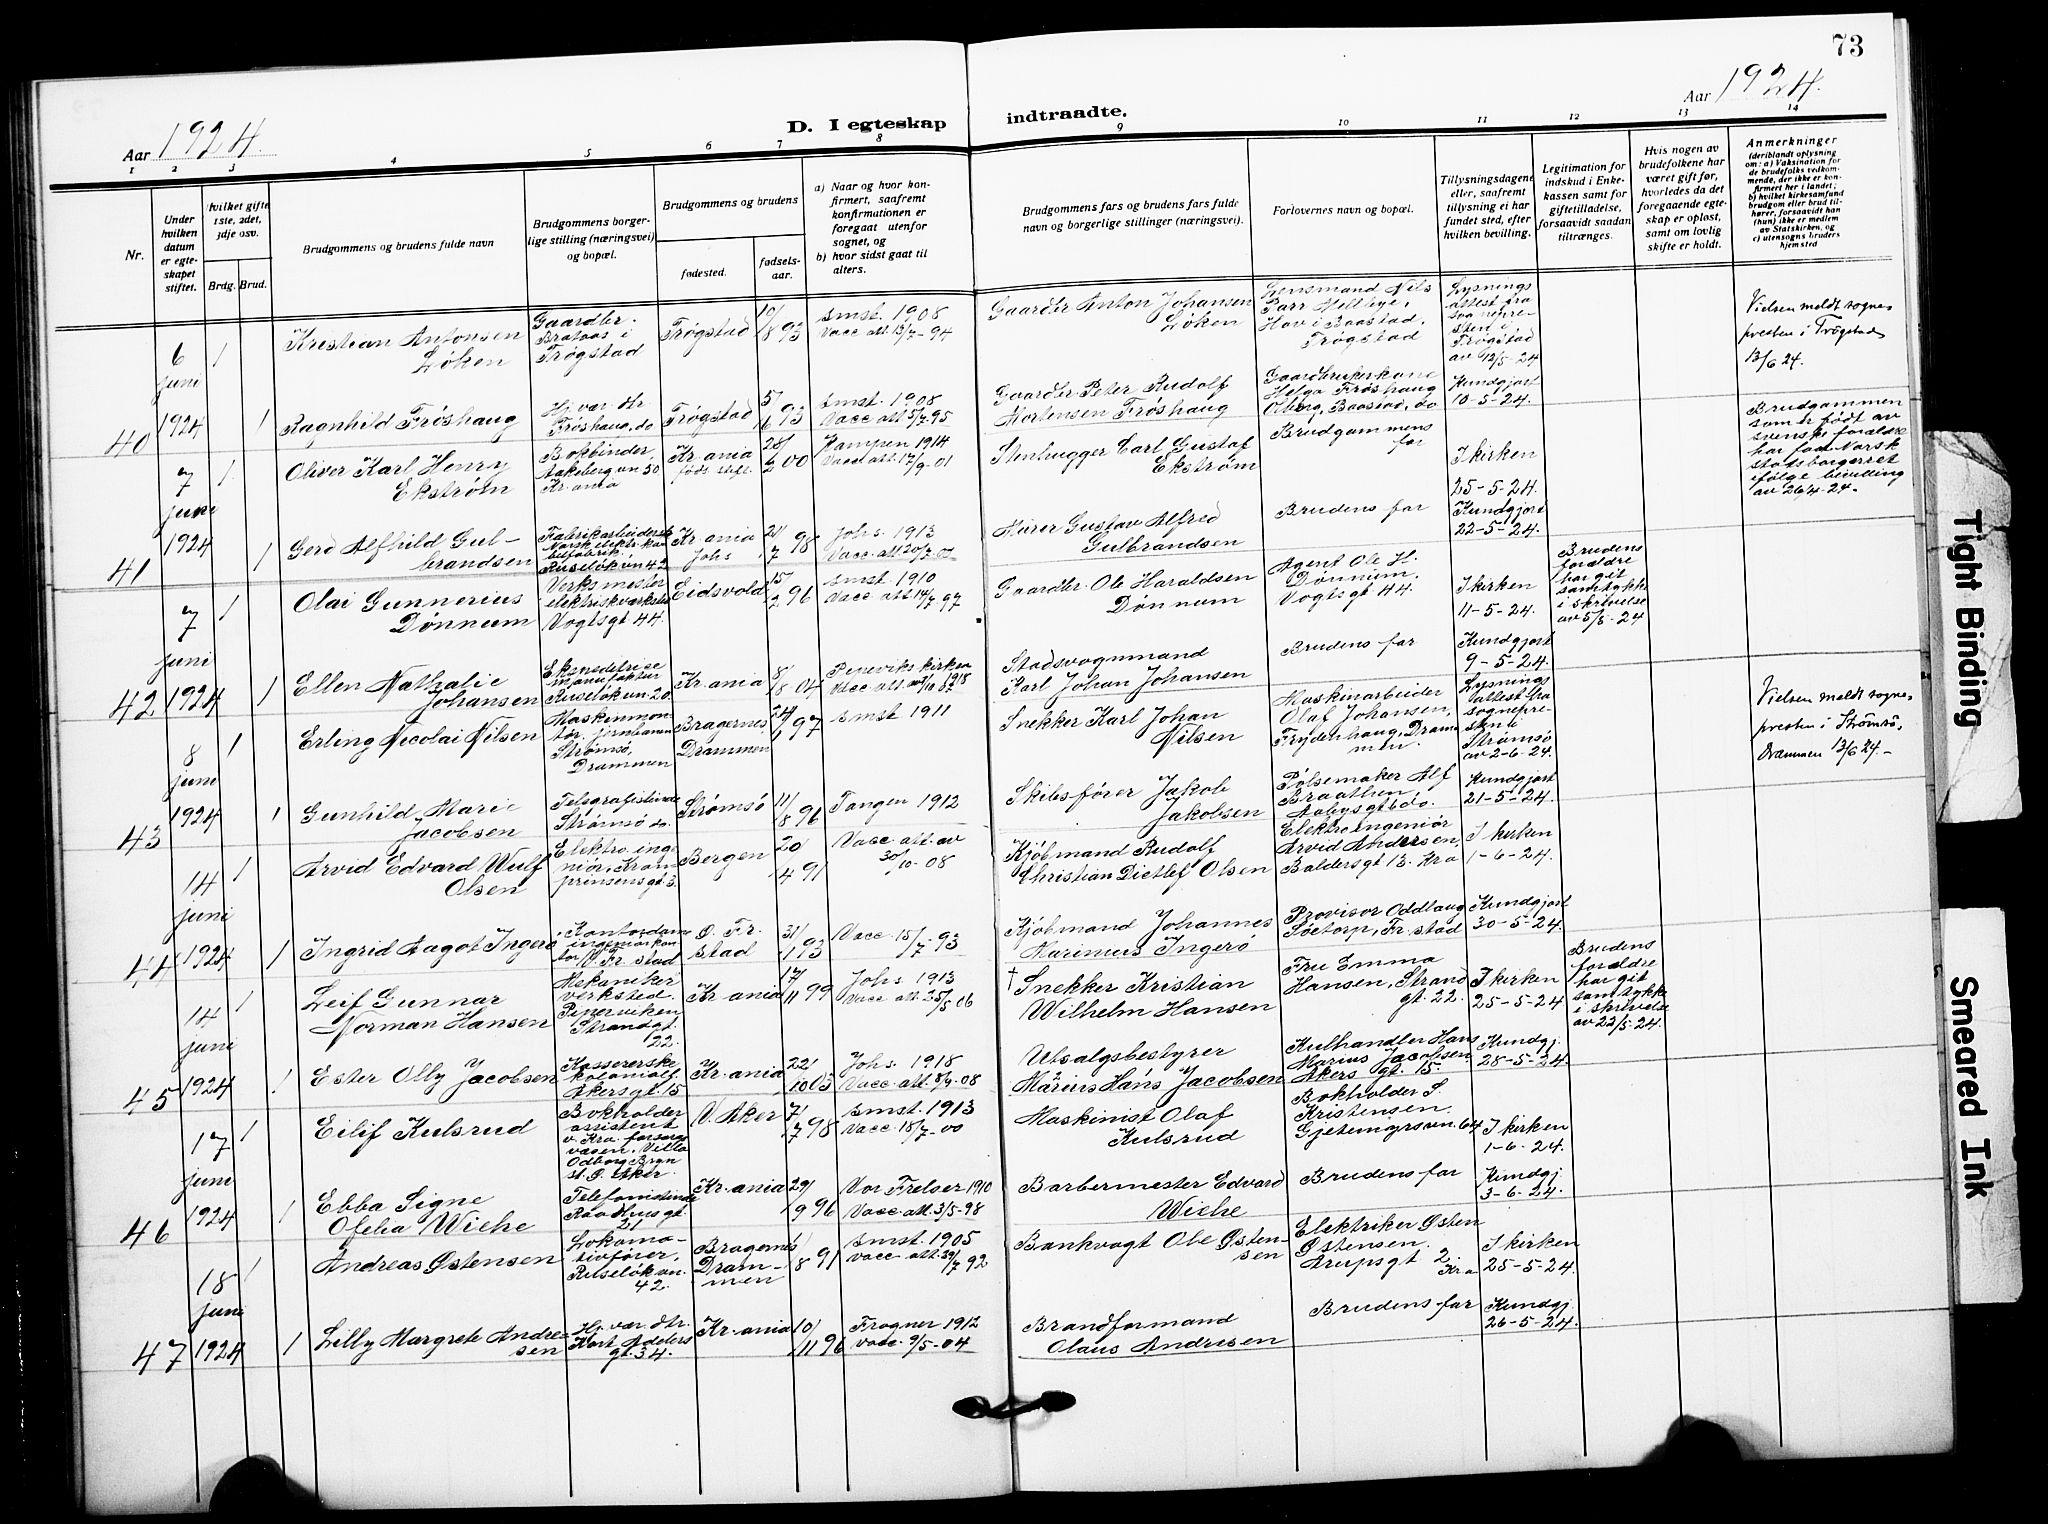 73
Aar 1924.
Aar 1924.
D. I egteskap indtraadte.
1 2 3 4 5 6 7 8 9 10 11 12 13 14
Nr.
Under
hvilken
datum
er egte-
skapet
stiftet.
hvilket gifte
1ste, 2det,
3dje osv.
Brdg. Brud.
Brudgommens og brudens fulde navn
Brudgommens borger-
lige stilling (næringsvei)
og bopæl.
Brudgommens og brudens
fødested.
fødsels-
aar.
a) Naar og hvor kon-
firmert, saafremt
konfirmationen er
foregaat utenfor
sognet, og
b) hvor sidst gaat til
alters.
Brudgommens fars og brudens fars fulde
navn og borgerlige stillinger (næringsvei).
Forlovernes navn og bopæl.
Tillysningsdagene
eller, saafremt
tillysning ei har
fundet sted, efter
hvilken bevilling.
Legitimation for
indskud i Enke-
kassen samt for
giftetilladelse,
forsaavidt saadan
tiltrænges.
Hvis nogen av
brudefolkene har
været gift før,
hvorledes da det
foregaaende egte-
skap er opløst,
samt om lovlig
skifte er holdt.
Anmerkninger
(deriblandt oplysning
om: a) Vaksination for
de brudefolks vedkom-
mende, der ikke er kon-
firmert her i landet;
b) hvilket kirkesamfund
brudgom eller brud til-
hører, forsaavidt han
(hun) ikke er medlem
av Statskirken, og
c) utensogns bruders
hjemsted
40
6
juni
1924
1
Kristian Antonsen
Løken
Gaardbr.
Brataas i
Trøgstad
Trøgstad
10/8 93
smst. 1908
Vacc att 13/7-94
Gaardbr Anton Johansen
Løken
Lensmand Nils
Parr Hellebye,
Hov i Baastad,
Trøgstad
Lysnings
attest fra
sognepre-
sten i
Trøgstad
av 12/5-24
Vielsen meldt sogne-
presten i Trøgstad
13/6 24.
1
Ragnhild Frøshaug
Hj. vær. dtr.
Frøshaug, do
Trøgstad
5/6 93
smst. 1908
Vacc att 5/7-95
Gaardbr Peter Rudolf
Mortensen Frøshaug
Gaardbrukerkone
Helga Frøshaug
Olberg, Baastad, do
Kundgjort
10-5-24.
41
7
juni
1924
1
Oliver Karl Henry
Ekstrøm
Bokbinder,
Aakebergvn 50
Kr.ania
Kr.ania
føds. stift.
28/2 00
Kampen 1914
Vacc. att. 17/9-01
Stenhugger Carl Gustaf
Ekstrøm
Brudgommens
far
I kirken
25-5-24.
Brudgommen
som er født av
svenske forældre
har faat Norsk
statsborgerret
ifølge bevilling
av 26/4-24.
1
Gerd Alfhild Gul-
brandsen
Fabrikarbeiderske
Norsk elektr. ka-
belfabrik.
Ruseløkvn 42
Kr.ania
Johs
21/7 98
Johs. 1913
Vacc-att 20/7-00
Murer Gustav Alfred
Gulbrandsen
Brudens far
Kundgjort
22-5-24.
42
7
juni
1924
1
Olai Gunnerius
Dønnum
Verksmester
elektriskverksted
Vogtsgt 44.
Eidsvold
15/2 96
smst. 1910
Vacc att 14/7 97
Gaardbr. Ole Haraldsen
Dønnum
Agent Ole H.
Dønnum.
Vogtsgt 44.
I kirken
11-5-24.
Brudens
forældre
har git
samtykke
i skrivelse
av 5/5-24
1
Ellen Nathalie
Johansen
Ekspeditrise
manufaktur
Ruseløkvn. 20.
Kr.ania
8/8 04
Pipervikskirken 1918
Stadsvognmand
Karl Johan Johansen
Brudens far
Kundgjort
9-5-24.
43
8
juni
1924
1
Erling Nicolai Nilsen
Maskinmon-
tør, jernbanen
Strømsø,
Drammen
Bragernes,
Drammen
24/1 97
smst 1911
Snekker Karl Johan
Nilsen
Maskinarbeider
Olaf Johansen,
Frydenhaug, Dram-
men.
Lysnings
attest fra
sognepre-
sten i
Strømsø
av 2-6-24.
Vielsen meldt sogne-
presten i Strømsø,
Drammen 13/6 24.-
1
Gunhild Marie
Jacobsen
Telegrafistinde
Strømsø do.
Strømsø
11/8 96
Tangen 1912
Skibsfører Jakob
Jakobsen
Pølsemaker Alf
Braathen
Aabysgt 6 do.
Kundgjort
21-5-24.
44
14
juni
1924
1
Arvid Edvard Wulf
Olsen
Elektro. inge-
niør, Kron-
prinsensgt. 3.
Bergen
20/4 91
Vacc. att. av
30/10-08
Kjøbmand Rudolf
Christian Ditlef Olsen
Elektroingeniør
Arvid Andersen,
Baldersgt 13. Kra
I kirken
1-6-24.
1
Ingrid Aagot Ingerø
Kontordame
ingeniørkon-
tor, V. Fr. stad
Ø. Fr.
stad
31/1 93
Vacc 15/7-93
Kjøbmand Johannes
Marinius Ingerø
Provisor Oddlaug
Sætorp, Fr. stad
Kundgjort
30-5-24.
45
14
juni
1924
1
Leif Gunnar
Norman Hansen
Mekaniker
verksted.
Piperviken
Strandgt.
22.
Kr.ania
17/11 99
Johs 1913
Vacc. att. 25/5 06
† Snekker Kristian
Wilhelm Hansen
Fru Emma
Hansen, Strand
gt. 22.
I kirken
25-5-24
Brudens
forældre
har git
samtykke
i skrivelse
av 22/5-24.
1
Ester Olly Jacobsen
Kassererske
kolonialf.
Akersgt 15
Kr.ania
22/10 03
Johs. 1918
Vacc. att. 8/7-08
Utsalgsbestyrer
Marius Hans Jacobsen
Kulhandler Hans
Marius Jacobsen
Akers gt. 15.
Kundgj.
28-5-24.
46
17
juni
1924
1
Eilif Kulsrud
Bokholder
assistent
v. Kra. forsorgs
væsen. Villa
Odborg, Bryn
st. Ø. Aker.
V. Aker
7/7 98
smst. 1913
Vacc. 15/7-00
Maskinist Olaf
Kulsrud
Bokholder S.
Kristensen.
Gjetemyrsvn. 64
I kirken
1-6-24.
1
Ebba Signe
Ofelia Wiche
Telefonistinde
Raadhusgt
21
Kr.ania
29/9 96
Vor Frelser 1910
Vacc. att. 3/5-98
Barbermester Edvard
Wiche
Brudens far
Kundgj
3-6-24.
47
18
juni
1924
1
Andreas Østensen
Lokomo-
tivfører,
Ruseløkvn.
42.
Bragernes
Dram-
men
1/8 91
smst. 1905
vacc att. 29/7 92
Bankvagt Ole Østen-
sen
Elektriker Østen
Østensen.
Arupsgt 2.
Kra
I kirken
25-5-24.
1
Lilly Margrete Andre-
sen
Hj. vær. dtr.
Kort Adelers
gt. 34.
Kr.ania
10/11 96
Frogner 1912
vacc. 9/5-04
Brandformand
Olaus Andresen
Brudens far
Kundgj.
26-5-24.
Tight Binding
Smeared Ink